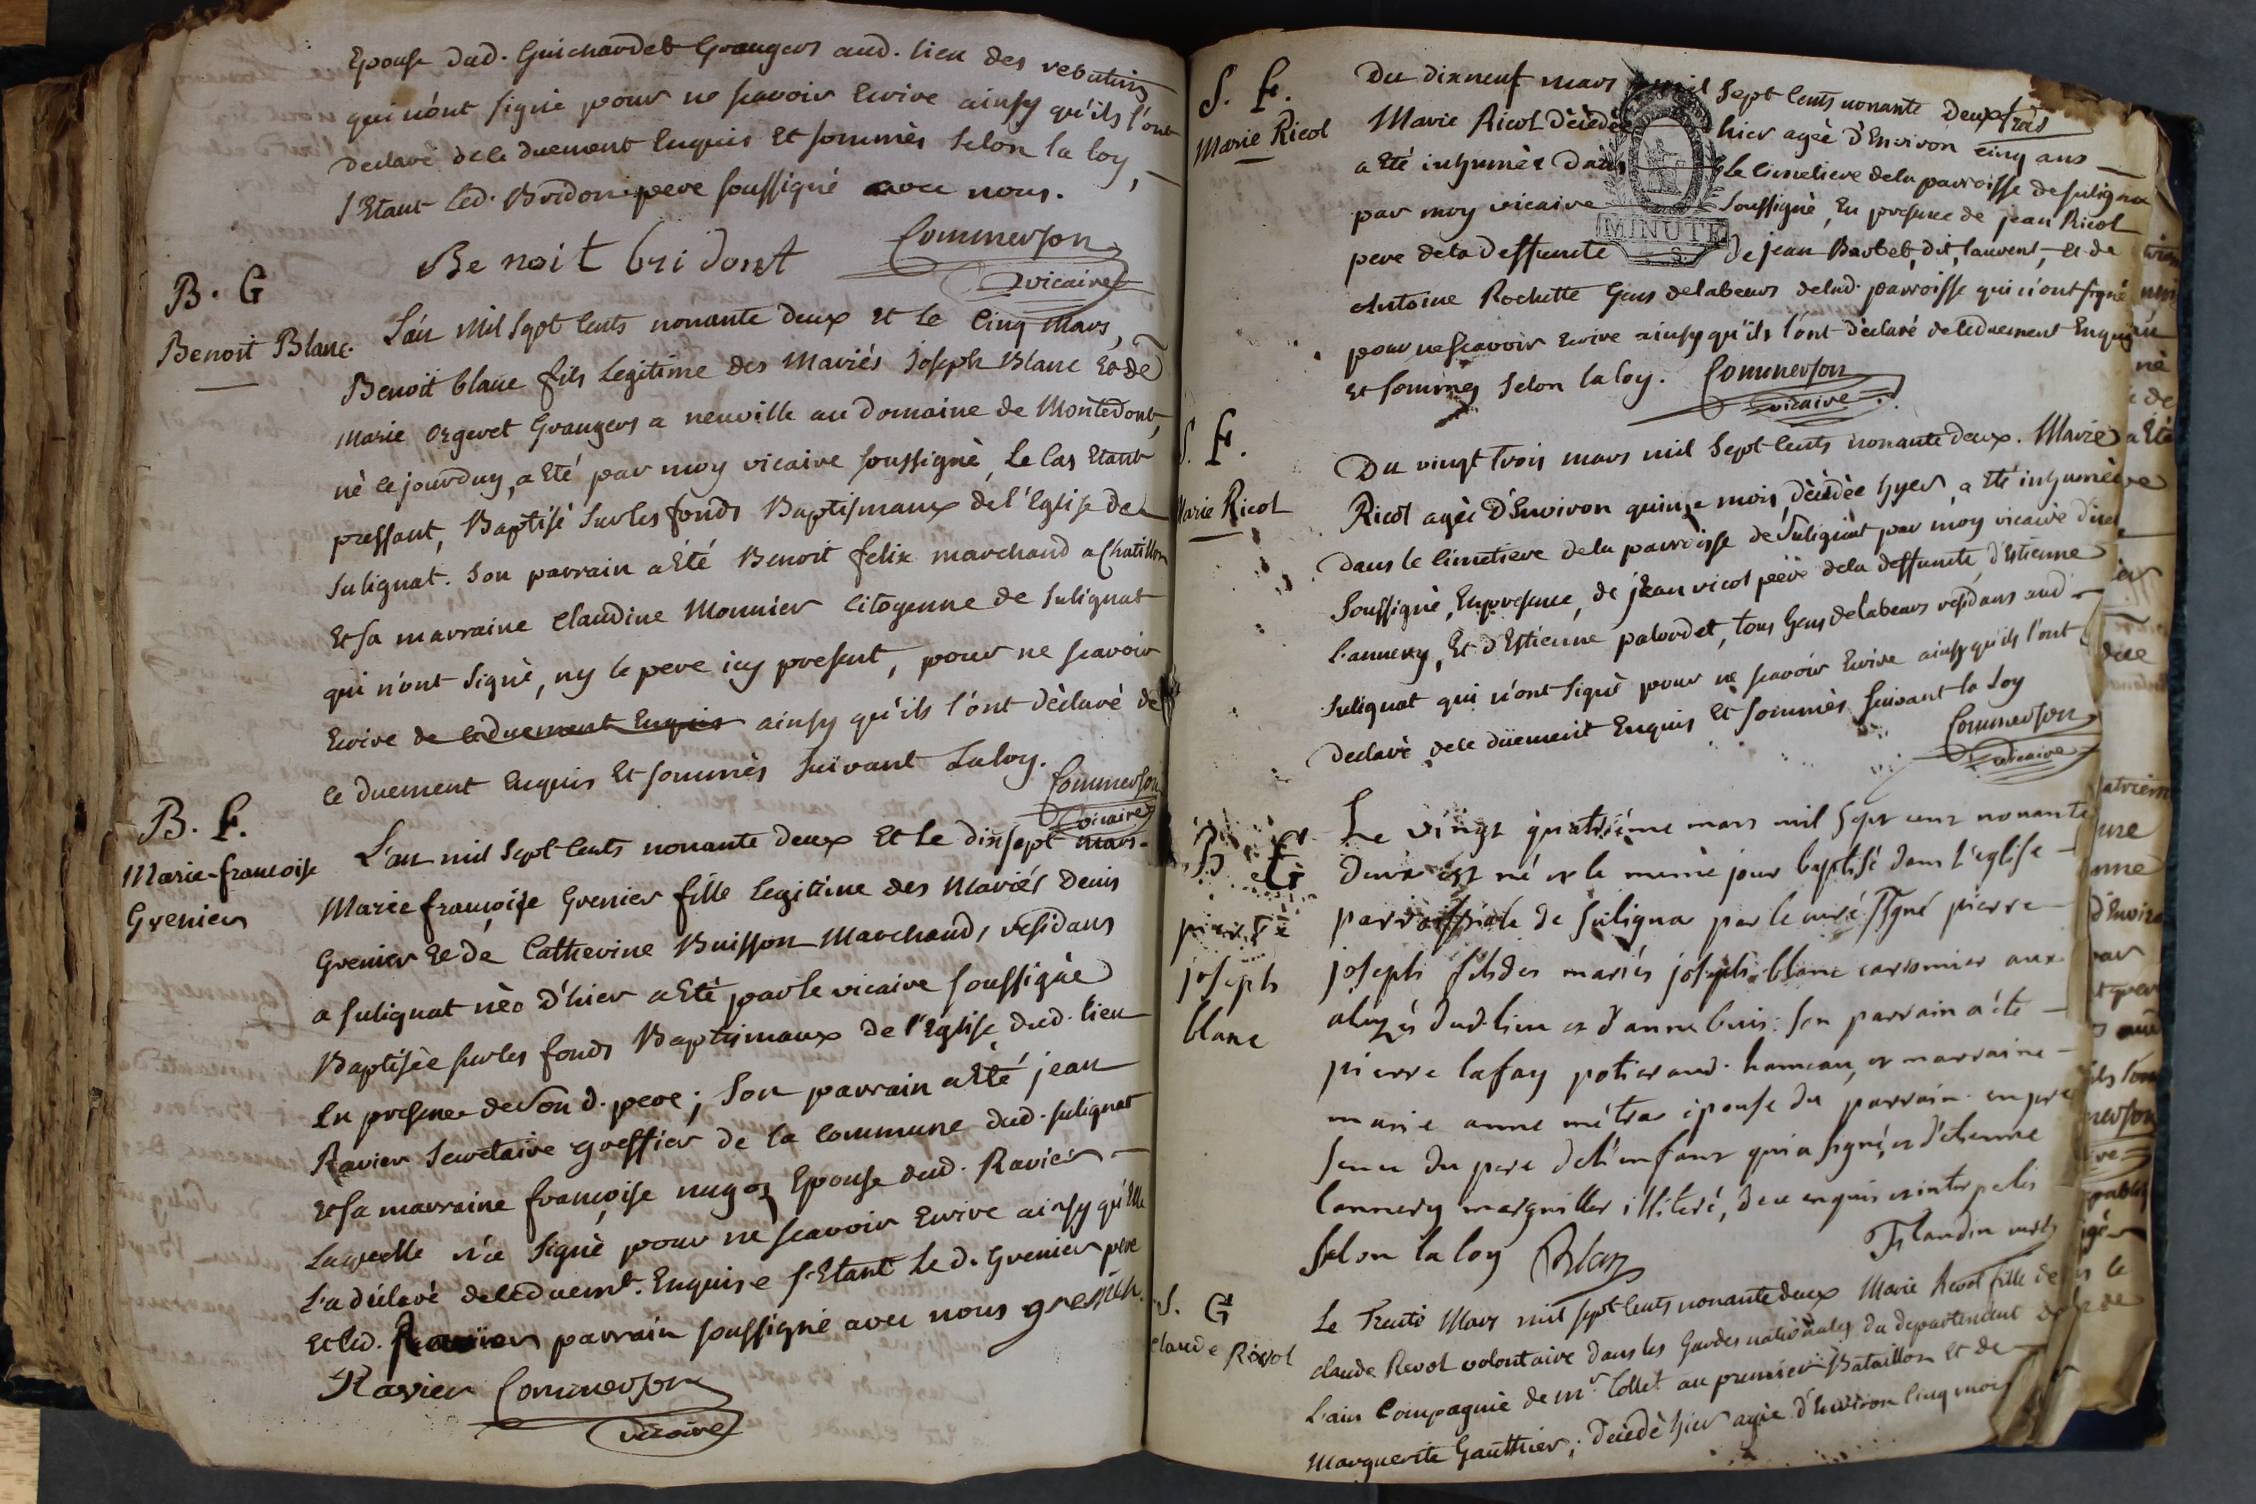 Epouse dud. Guichardet Grangers aud. lieu des rebutins
qui n'ont signé pour ne scavoir Ecrire ainsy qu'ils l'ont
declaré de ce duement Enquis Et sommés selon la loy,
s'Etant led. Bridon pere soussigné avec nous.
Benoit bridont Commerson
vicaire
B. G
Benoit Blanc
L'an Mil Sept Cents nonante deux et Le Cinq Mars,
Benoit blanc fils Legitime des Mariés Joseph Blanc Et de
Marie Orgeret Grangers a neuville au Domaine de Montedont,
né ce jourduy, a Eté par moy vicaire soussigné, Le Cas Etant
pressant, Baptisé sur les fonds Baptismaux de l'Eglise de
Sulignat. Son parrain a Eté Benoit felix marchand a Chatillon
Et sa marraine Claudine Monnier Citoyenne de Sulignat
qui n'ont signé, ny le pere icy present, pour ne scavoir
Ecrire de ce duement Enquis ainsy qu'ils l'ont déclaré de
ce duement Enquis Et sommés suivant La loy.
Commerson
vicaire
B. F.
Marie-francoise
Grenier
L'an mil Sept Cents nonante Deux Et Le dixsept mars.
Marie françoise Grenier fille Legitime des Mariés Denis
Grenier Et de Catherine Buisson Marchands residans
a Sulignat née D'hier a Eté par le vicaire soussigné
Baptisée sur les fonds Baptismaux de l'Eglise dud. lieu
En presence de son d. pere; Son parrain a Eté jean
Ravier Secretaire greffier de la Commune dud. Sulignat
Et sa marraine françoise nugos Epouse dud. Ravier
Laquelle n'a Signé pour ne scavoir Ecrire ainsy qu'Elle
L'a déclaré de ce duemt. Enquise s'Etant Le d. Grenier pere
Et led. Ravier parrain soussigné avec nous grenier.
Ravier Commerson
vicaire
S. F.
Marie Ricol
Du dixneuf mars mil Sept Cents nonante Deux
Marie Ricol Décédée hier agée D'Environ cinq ans
a Eté inhumée Dans Le Cimetiere de la parroisse de Sulignat
par moy vicaire Soussigné, En presence de jean Ricol
pere de la deffunte De jean Barbet, dit, laurent, et de
Antoine Rochette Gens de labeurs de lad. parroisse qui n'ont signé
pour ne scavoir Ecrire ainsy qu'ils l'ont déclaré de ce duement Enquis
Et sommés Selon la loy. Commerson
vicaire
MINUTE
S. F.
Marie Ricol
Du vingt trois mars mil Sept Cents nonante deux. Marie
Ricol agée D'Environ quinze mois, décédée hyer, a Eté inhumée
Dans le Cimetiere de la parroisse de Sulignat par moy vicaire
Soussigné, En presence, de jean ricol pere de la deffunte, d'Estienne
Lannery, Et d'Estienne palordet, tous Gens de labeurs residans aud
Sulignat qui n'ont Signé pour ne scavoir Ecrire ainsy qu'ils l'ont
declaré de ce düement Enquis Et Sommés Suivant la Loy
Commerson
vicaire
B G
pierre
joseph
blanc
Le vingt quatrième mars mil sept cent nonante
deux est né et le même jour baptisé dans l'eglise
parroissiale de Suligna par le curé signé pierre
joseph fils des mariés joseph blanc cartonnier aux
dud. lieu et d'anne buis: son parrain a été
pierre lafay potier aud. hameau, et marraine
marie anne métra épouse du parrain. en pre
sence du pere de l'enfant qui a signé, et d'etienne
lannery marguiller illiteré, de ce enquis et interpelés
selon la loy Blanc Flandin curé
S. G
Claude Revol
Le Trente Mars mil sept Cents nonante deux Marie Revol fille de
Claude Revol volontaire dans les Gardes nationales du departement de
L'ain Compagnie de mr. Collet au premier Bataillon et de
Marguerite Gauthier; décédé hier agée d'Environ Cinq mois